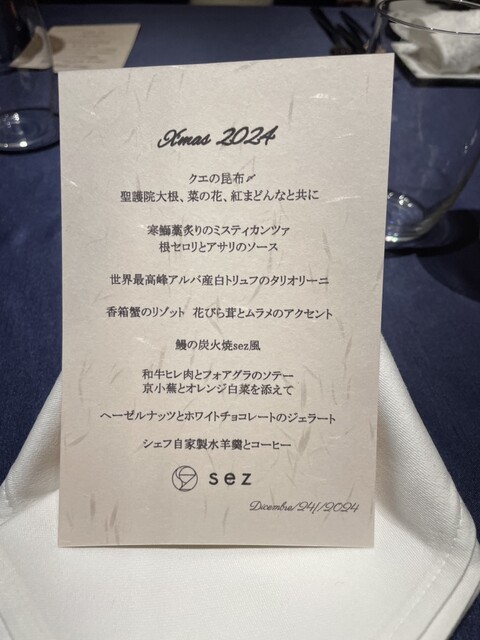 Xmas 2024
クエの昆布〆
聖護院大根、菜の花、紅まどんなと共に
寒鰤藁炙りのミスティカンツァ
根セロリとアサリのソース
世界最高峰アルバ産白トリュフのタリオリーニ
香箱蟹のリゾット 花びら茸とムラメのアクセント
鰻の炭火焼sez風
和牛ヒレ肉とフォアグラのソテー
京小蕪とオレンジ白菜を添えて
ヘーゼルナッツとホワイトチョコレートのジェラート
シェフ自家製水羊羹とコーヒー
sez
Dicembre/24//2024